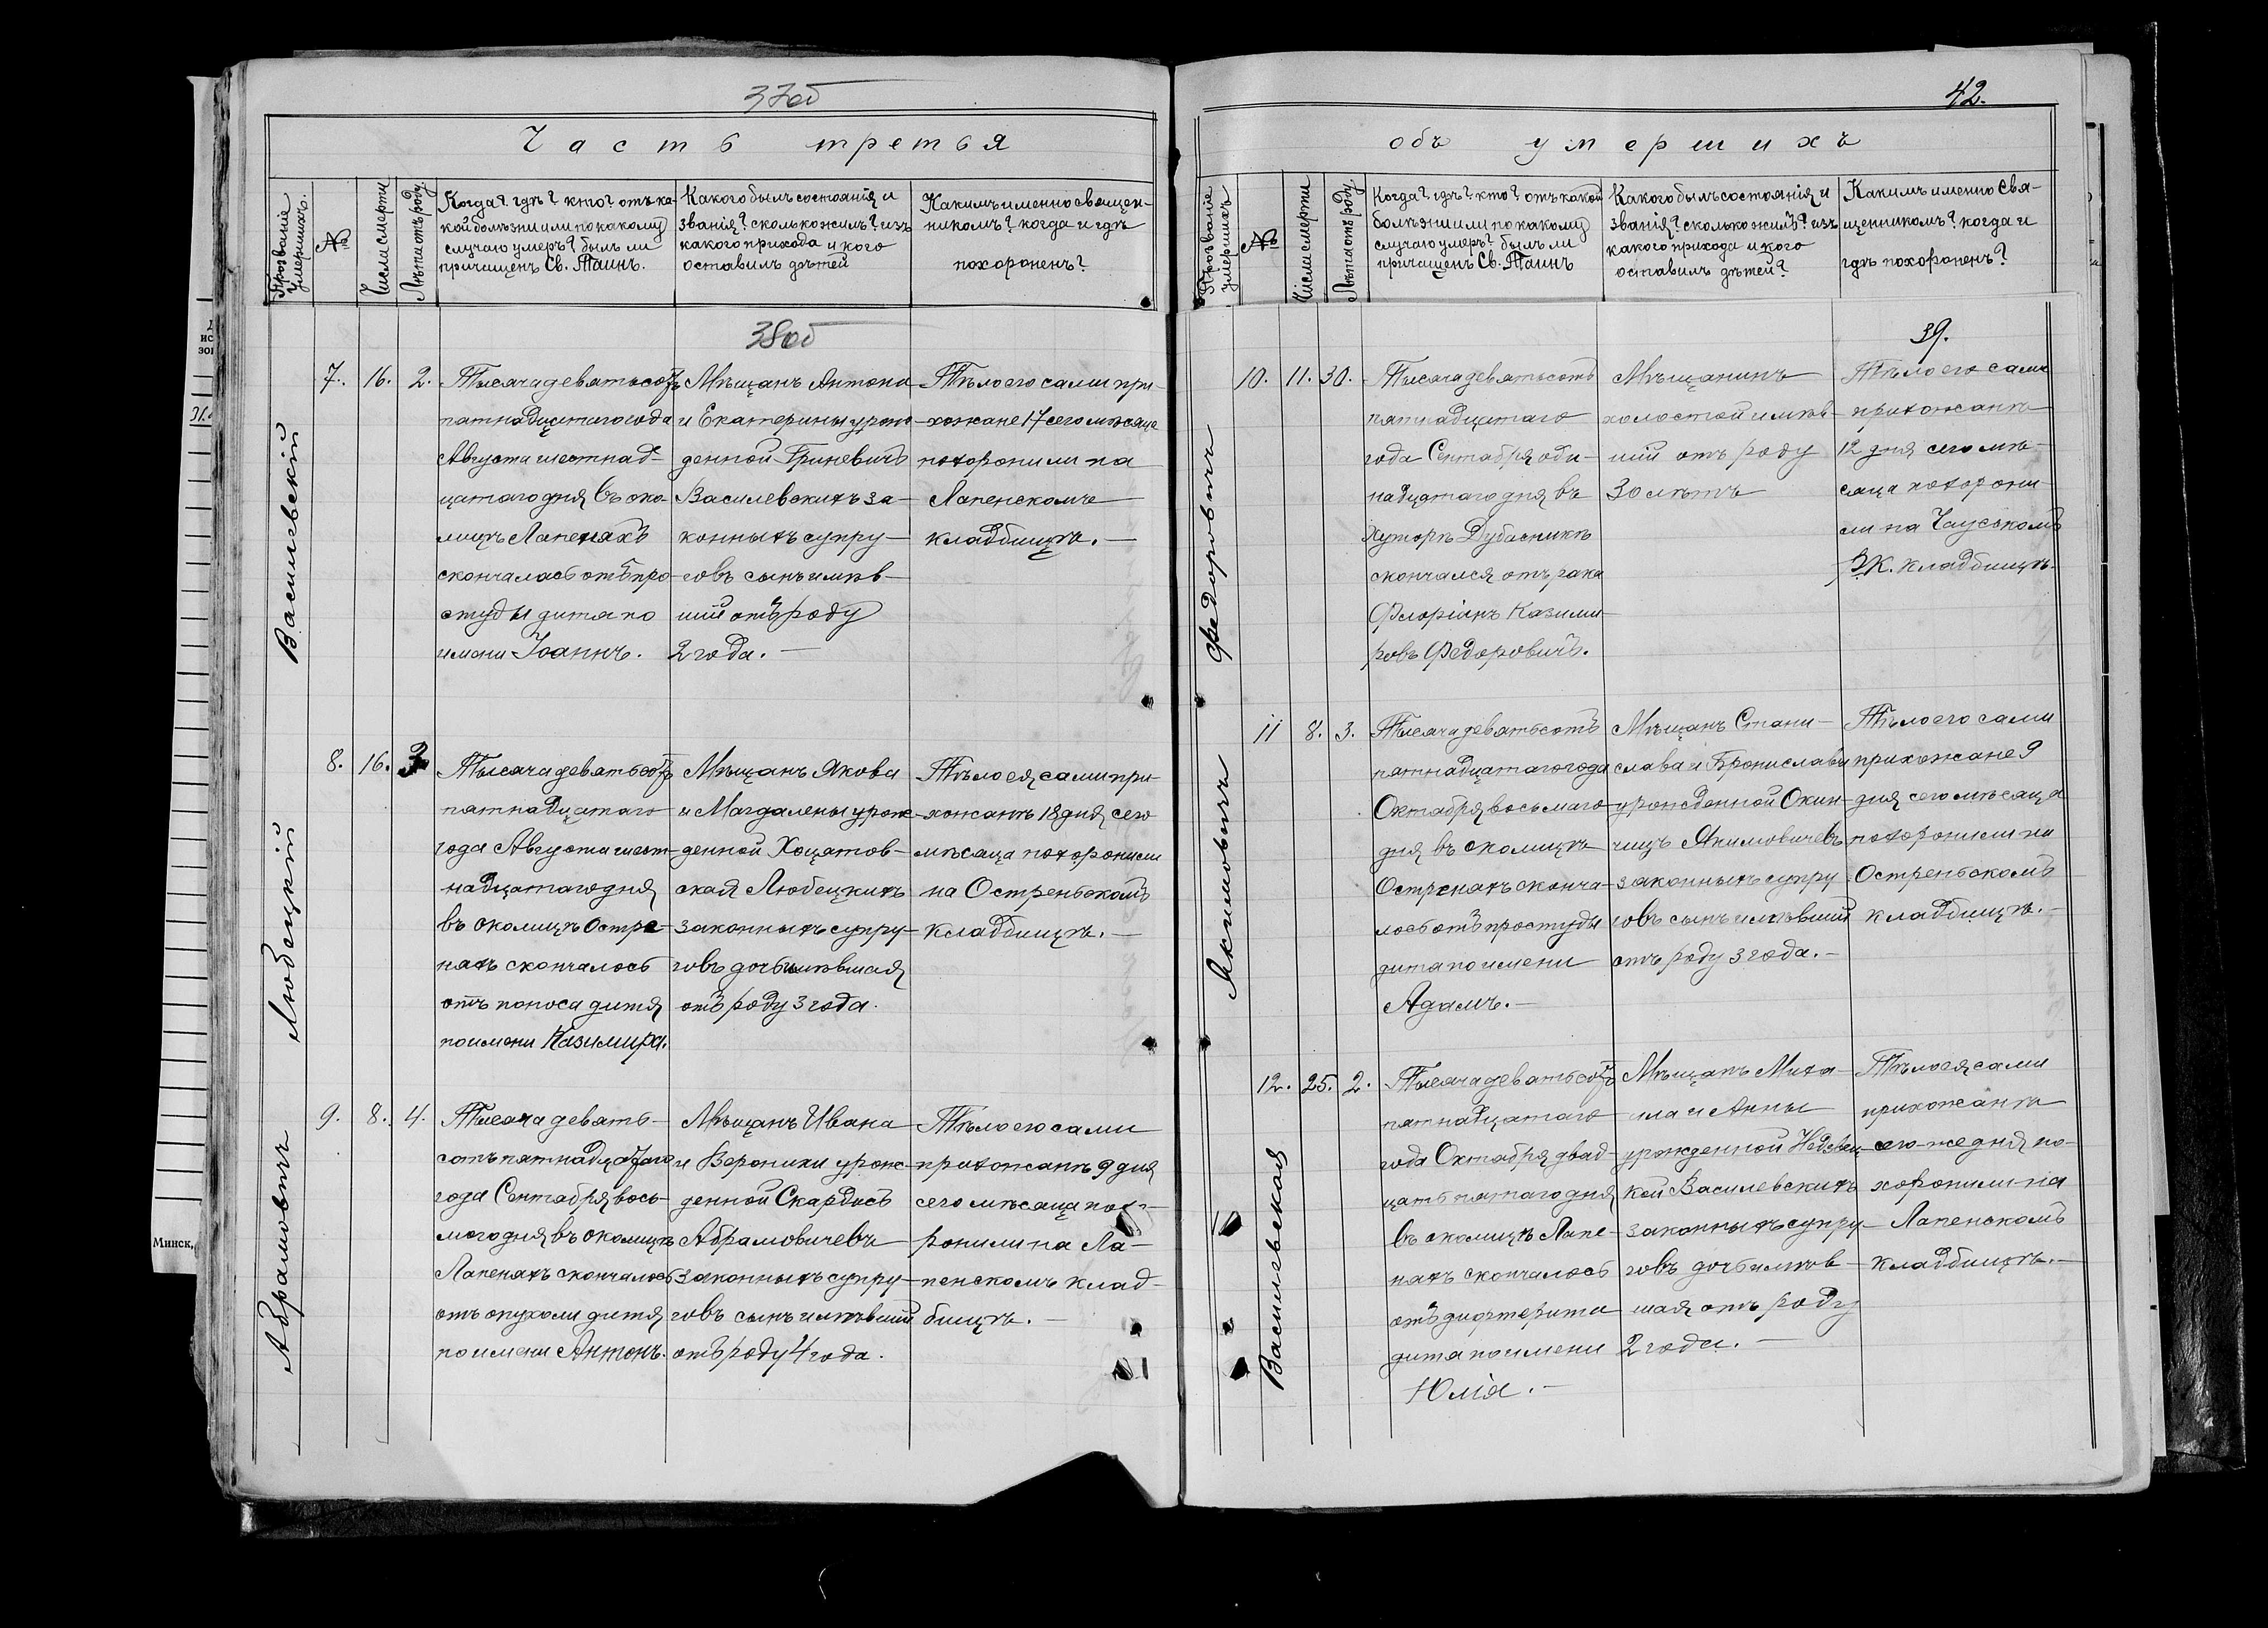 37об
Часть третья
Прозваніе умершихъ.
№
Числа смерти
Лѣта отъ роду.
Когда? гдѣ? кто? отъ ка-
кой болѣзни или по какому
случаю умеръ? былъ ли
причащенъ Св. Таинъ.
Какого былъ состоянія и
званія? сколько жилъ? изъ
какого прихода и кого
оставилъ дѣтей
Какимъ именно священ-
никомъ? когда и гдѣ
похороненъ?
38об
Василевскій
7.
16.
2.
Тысяча девятьсотъ
пятнадцатаго года
Августа шестнад-
цатаго дня въ око-
лицѣ Лапеняхъ
скончалась отъ про-
студы дитя по
имени Іоаннъ.
Мѣщанъ Антона
и Екатерины урож-
денной Гриневичъ
Василевскихъ за-
конныхъ супру-
говъ сынъ имѣв-
шій отъ роду
2 года. —
Тѣло его сами при-
хожане 17 сего мѣсяца
похоронили на
Лапенскомъ
кладбищѣ. —
Любецкій
8.
16.
3
Тысяча девятьсотъ
пятнадцатаго
года Августа шест-
надцатаго дня
въ околицѣ Остре-
няхъ скончалось
отъ поноса дитя
по имени Казимира.
Мѣщанъ Якова
и Магдалены урож-
денной Хоцятов-
ская Любецкихъ
законныхъ супру-
говъ дочь имѣвшая
отъ роду 3 года.
Тѣло ея сами при-
хожанѣ 18 дня сего
мѣсяца похоронили
на Остреньскомъ
кладбищѣ. —
Абрамовичъ
9.
8.
4.
Тысяча девять-
сотъ пятнадцатаго
года Сентября вось-
могодня въ околицѣ
Лапеняхъ скончалось
отъ опухоли дитя
по имени Антонъ.
Мѣщанъ Ивана
и Вероники урож-
денной Скардисъ
Абрамовичевъ
законныхъ супру-
говъ сынъ имѣвшій
отъ роду 4 года.
Тѣло его сами
прихожанѣ 9 дня
сего мѣсяца похо-
ронили на Ла-
пенскомъ клад-
бищѣ. —
42.
объ умершихъ
Прозваніе умершихъ
№
Числа смерти
Лѣта отъ роду
Когда? гдѣ? кто? отъ какой
болѣзни или по какому
случаю умеръ? былъ ли
причащенъ Св. Таинъ
Какого былъ состоянія и
званія? сколько жилъ? изъ
какого прихода и кого
оставилъ дѣтей?
Какимъ именно Свя-
щенникомъ? когда и
гдѣ похороненъ?
39.
Федоровичъ
10.
11.
30.
Тысяча девятьсотъ
пятнадцатаго
года Сентября оди-
надцатаго дня въ
Хуторѣ Дубасникѣ
скончался отъ рака
Флоріанъ Казими-
ровъ Федоровичъ.
Мѣщанинъ
холостой имѣв-
шій отъ роду
30 лѣтъ
Тѣло его сами
прихожанѣ
12 дня сего мѣ-
сяца похорони-
ли на Чауськомъ
Р.К. кладбищѣ.
Якимовичъ
11
8.
3.
Тысяча девятьсотъ
пятнадцатаго года
Октября восьмаго
дня въ околицѣ
Остренахъ сконча-
лось отъ простуды
дитя по имени
Адамъ. —
Мѣщанъ Стани-
слава и Брониславы
урожденной Окин-
чицъ Якимовичевъ
законныхъ супру-
говъ сынъ имѣвшій
отъ роду 3 года. —
Тѣло его сами
прихожане 9
дня сего мѣсяца
похоронили на
Остреньскомъ
кладбищѣ. —
Василевская
12.
25.
2.
Тысяча девятьсотъ
пятнадцатаго
года Октября двад-
цать пятаго дня
въ околицѣ Лапе-
няхъ скончалось
отъ дифтерита
дитя по имени
Юлія. —
Мѣщанъ Миха-
ила и Анны
урожденной Недзвец-
кой Василевскихъ
законныхъ супру-
говъ дочь имѣв-
шая отъ роду
2 года. —
Тѣло ея сами
прихожанѣ
сего-же дня по-
хоронили на
Лапенскомъ
кладбищѣ. —
Минск,